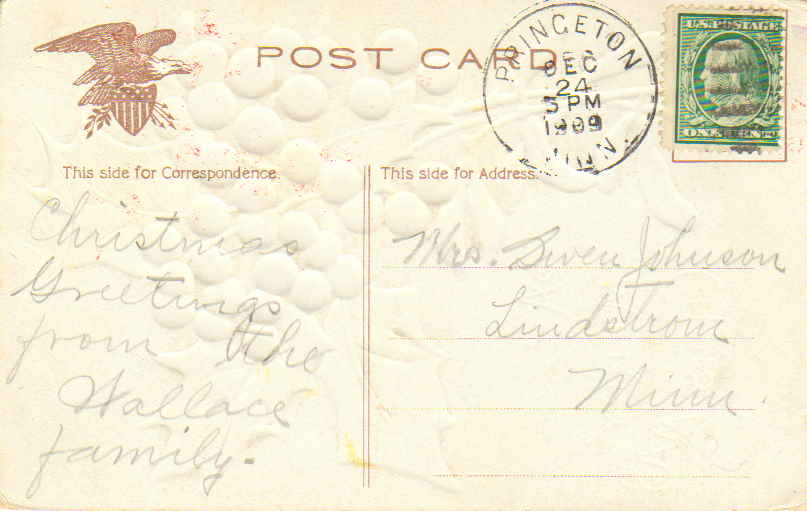 POST CARD
PRINCETON
DEC
24
5 PM
1909
MINN.
U.S. POSTAGE
ONE CENT
This side for Correspondence.
This side for Address.
Christmas
Greetings
from the
Wallace
family.
Mrs. Swen Johnson
Lindstrom
Minn.